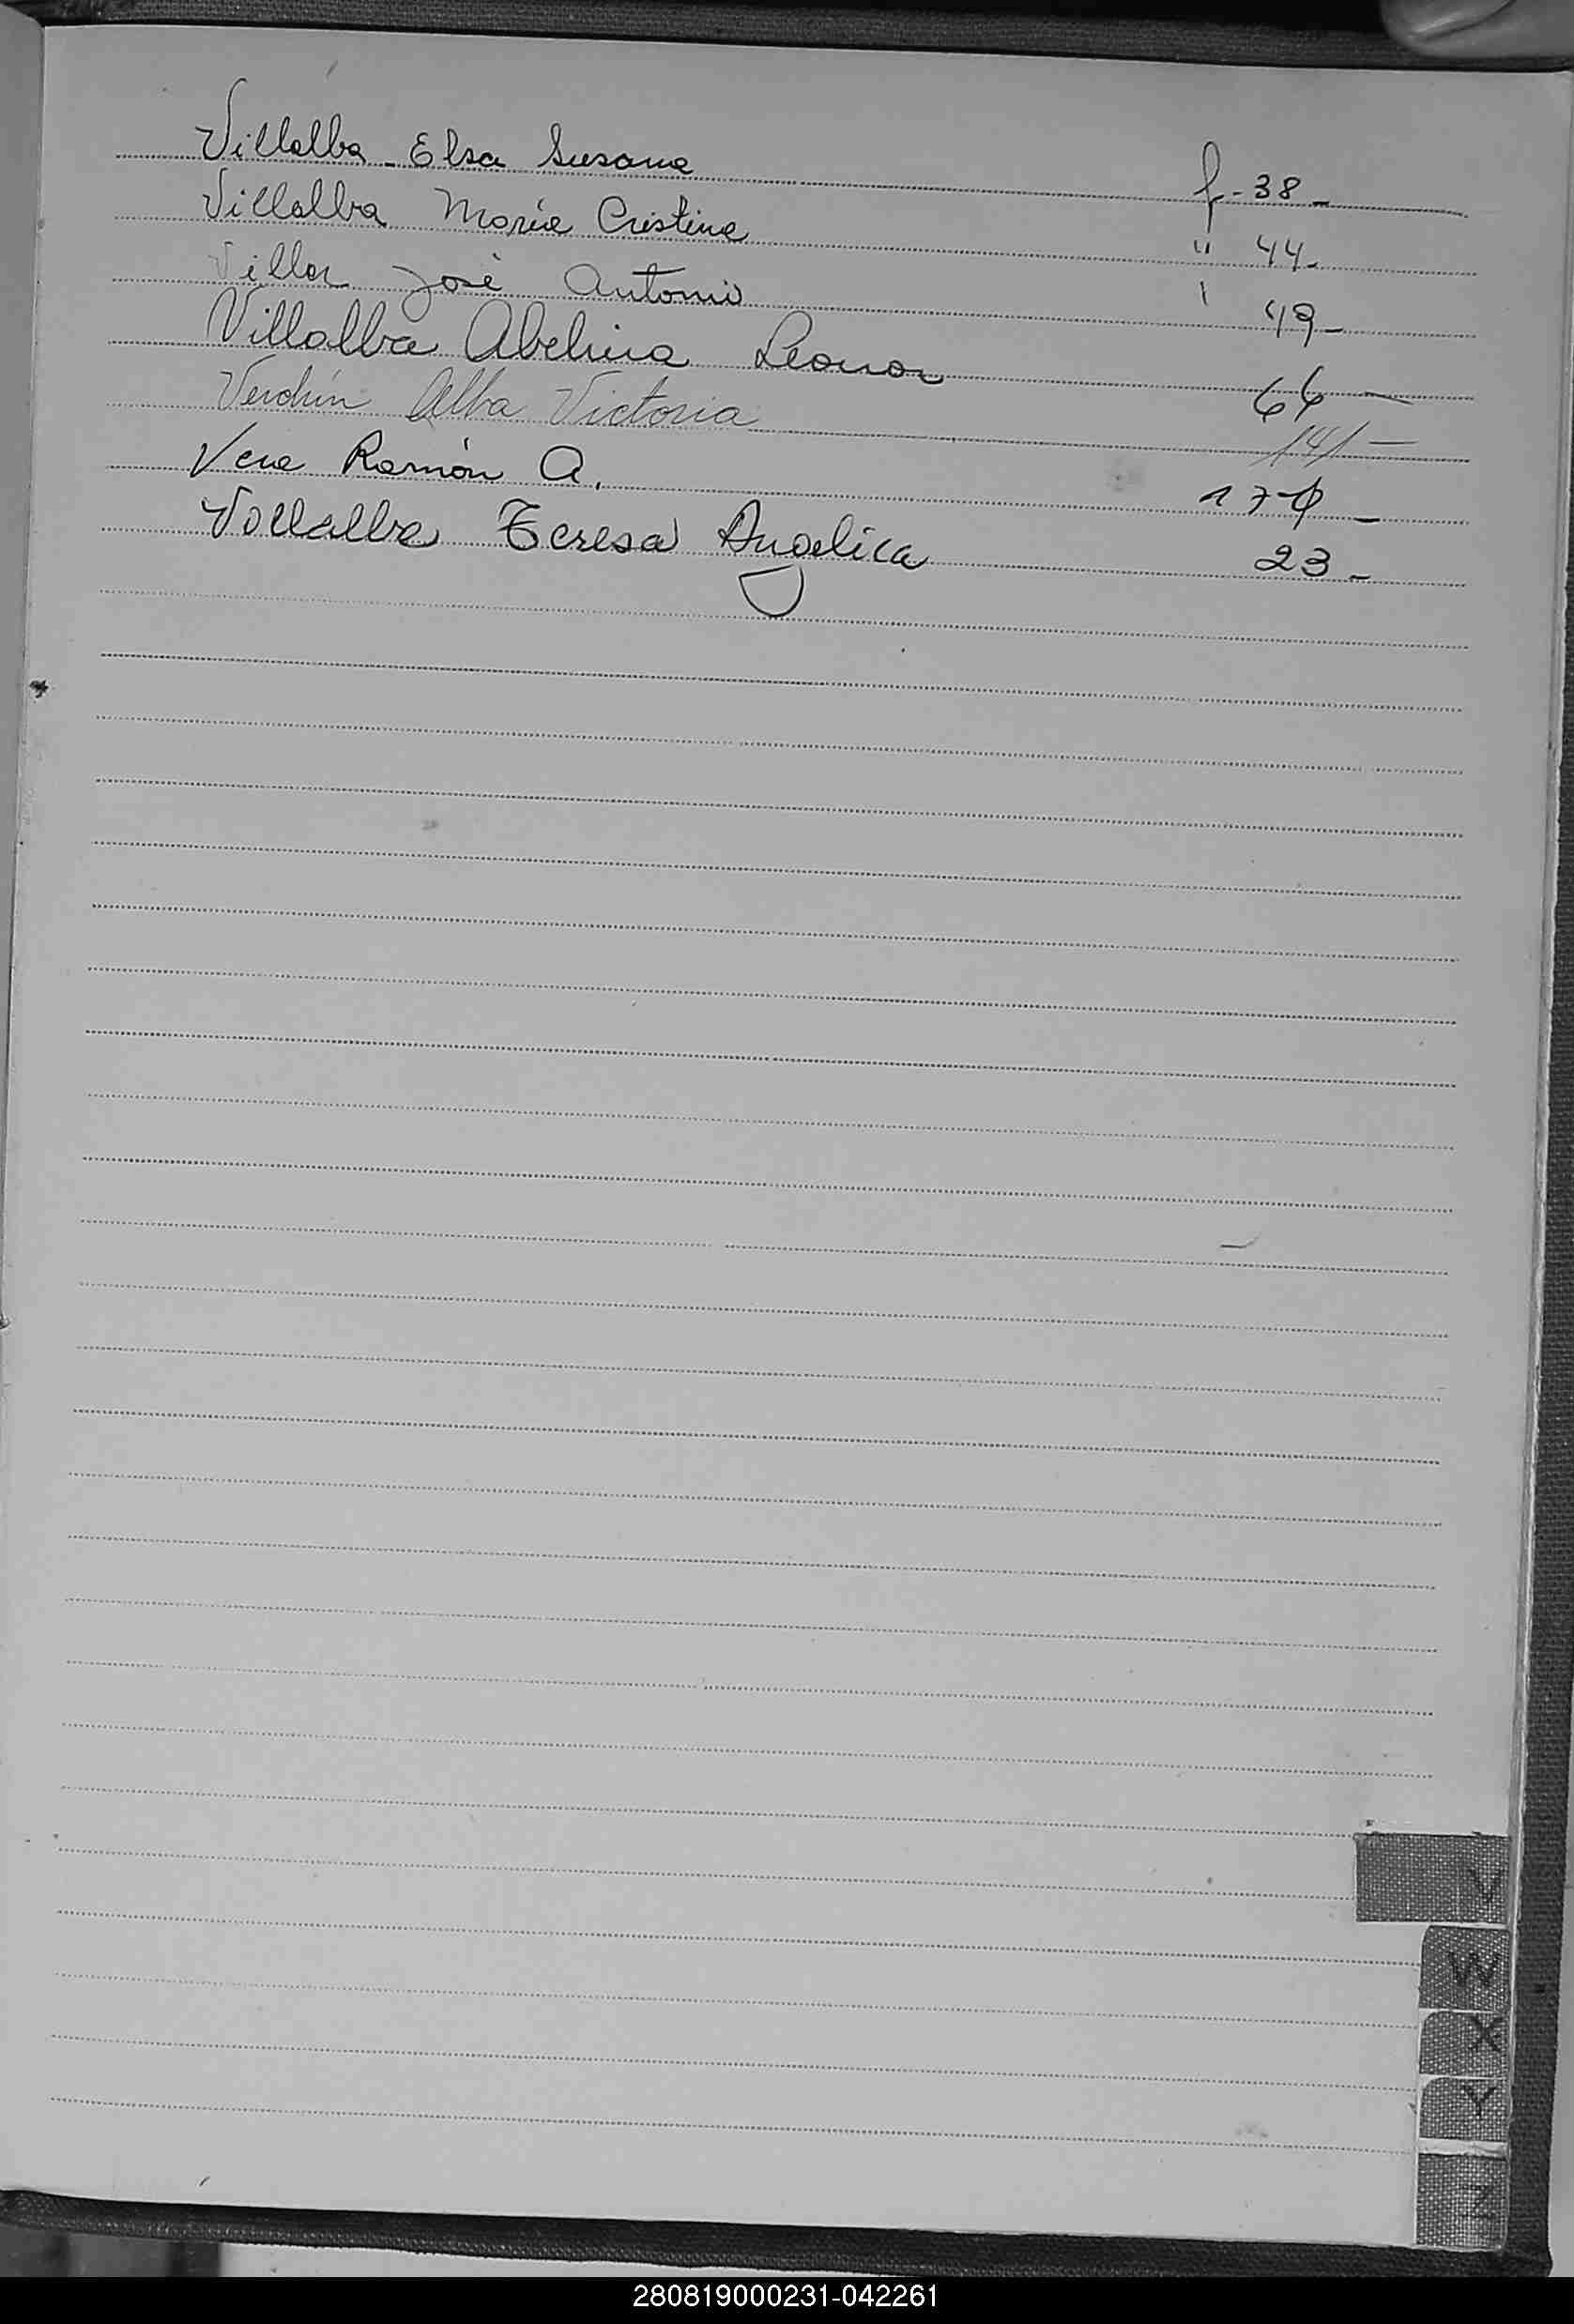 Villalba - Elsa Susana f- 38 -
Villalba María Cristina " 44 -
Villar José Antonio 49 -
Villalba Abelina Leonor 64 -
Verdún Alba Victoria 141 -
Vera Ramón A. -
Vollalba Teresa Angelica 23 -
V
W
X
Y
Z
280819000231-042261